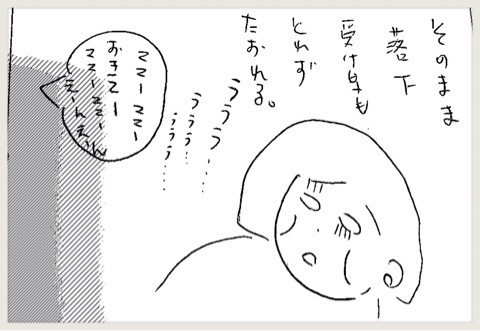 そのまま
落下
受け身も
とれず
たおれる。
うううう…
ううう…
ううう…
ママーママー
おきてー
ママーママー
えーんえーん